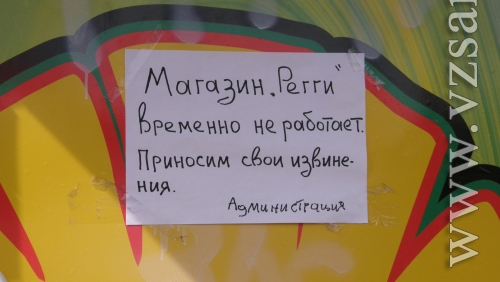 Магазин „Регги"
временно не работает.
Приносим свои извине-
ния.
Администрация
www.vzsar